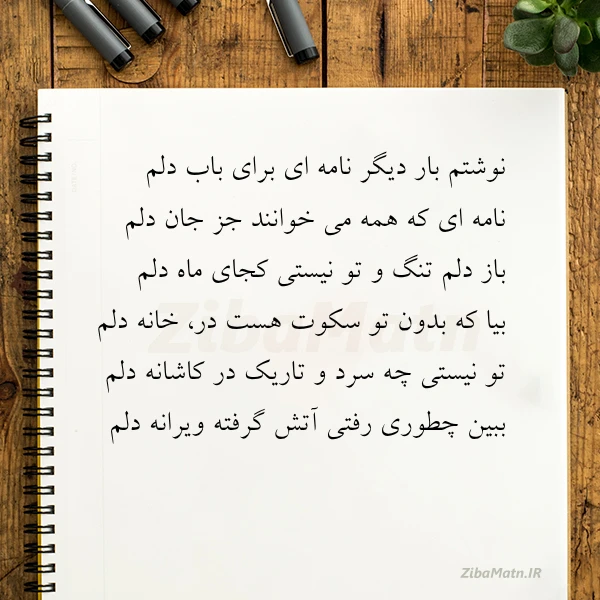 نوشتم بار دیگر نامه ای برای باب دلم
نامه ای که همه می خوانند جز جان دلم
باز دلم تنگ و تو نیستی کجای ماه دلم
بیا که بدون تو سکوت هست در، خانه دلم
تو نیستی چه سرد و تاریک در کاشانه دلم
ببین چطوری رفتی آتش گرفته ویرانه دلم
ZibaMatn
ZibaMatn.IR